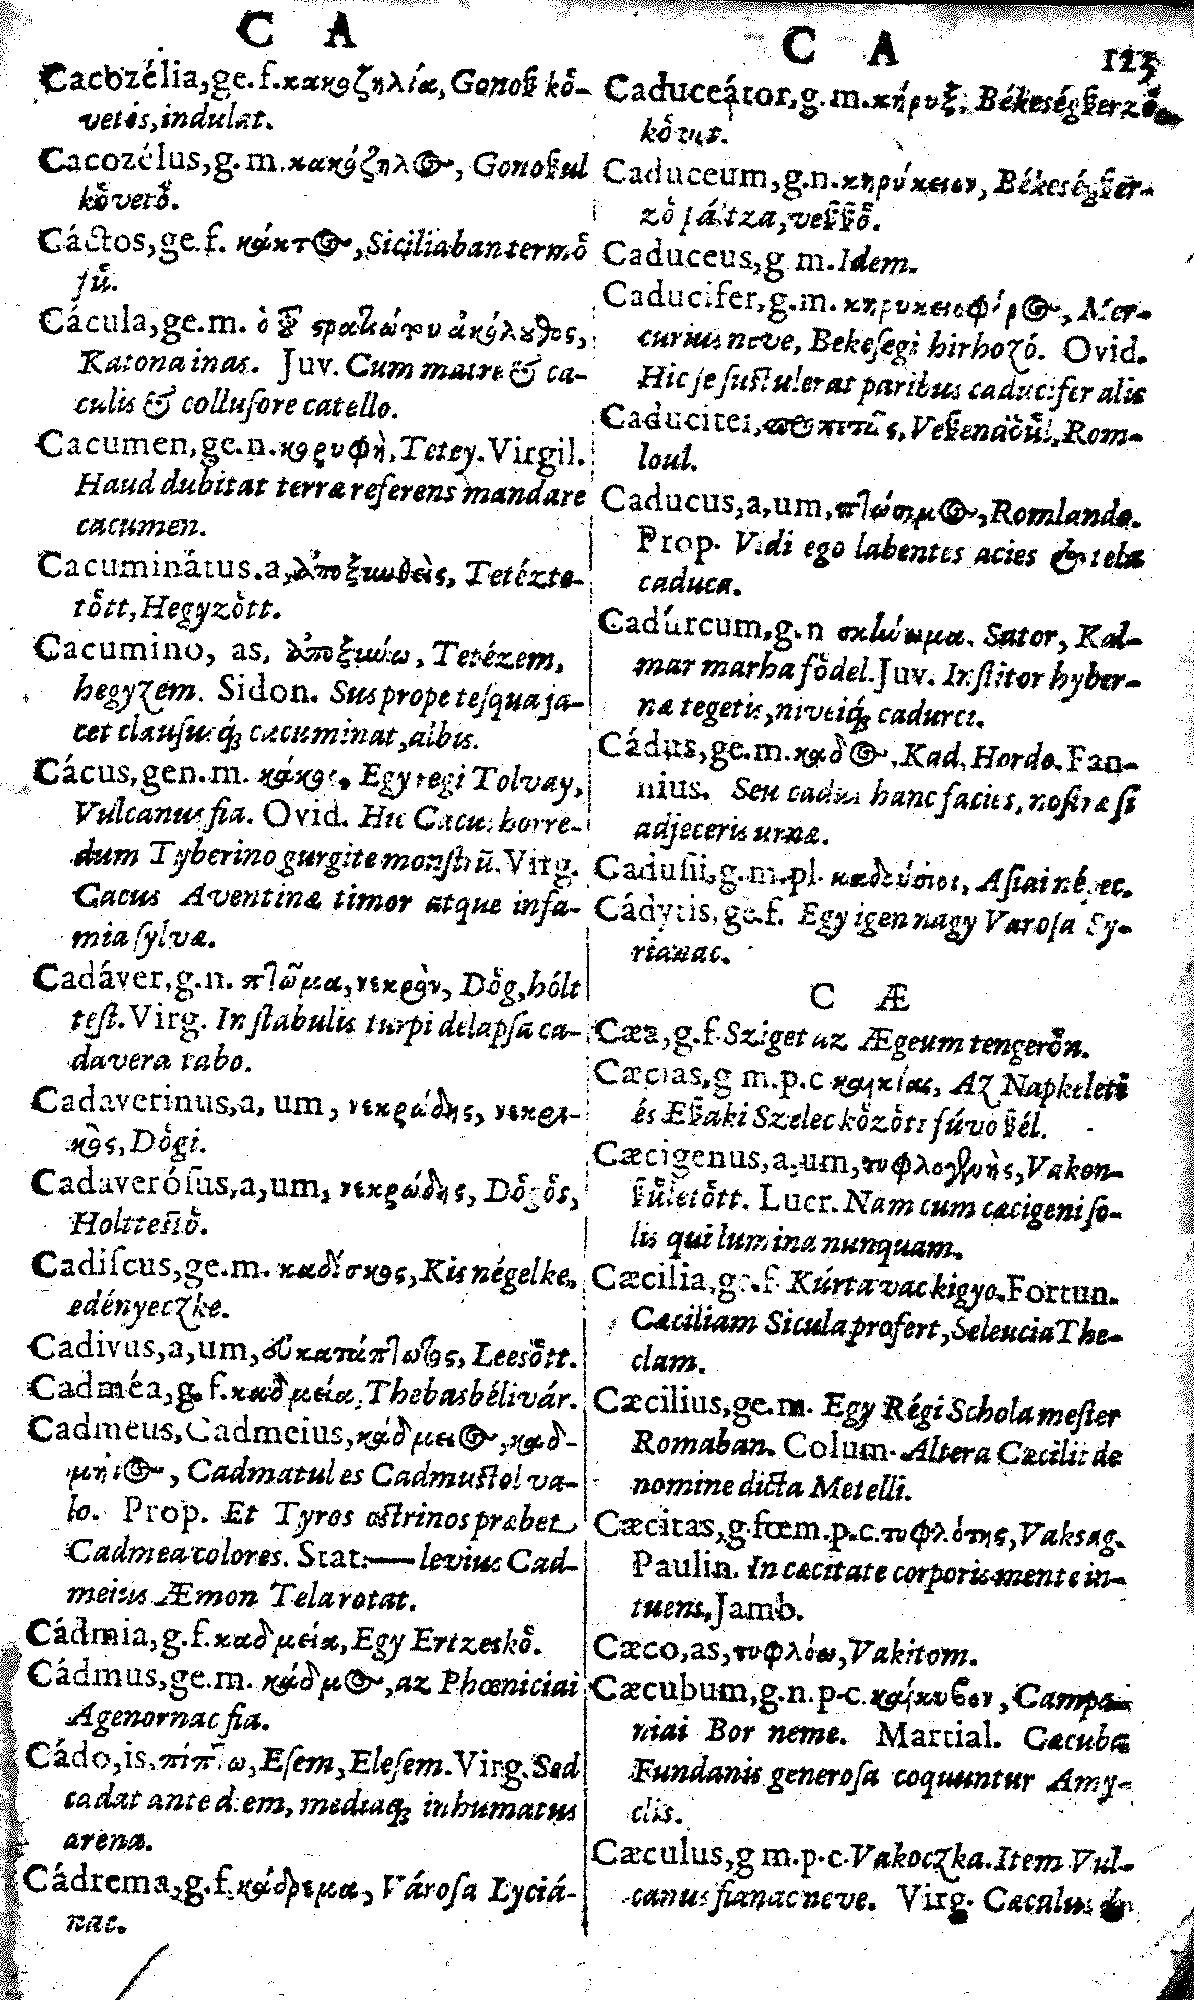 C A
Cacozélia, ge. f. κακοζηλία, Gonoß kö-
vetés, indulat.
Cacozélus, g. m. κακόζηλος, Gonoßul
követő.
Cáctos, ge. f. κάκτος, Siciliaban termö
fű.
Cácula, ge. m. ὁ τ῀ στρατιώτου ἀκόλουθος,
Katona inas. Juv. Cum matre & ca-
culis & collusore catello.
Cacumen, ge. n. κορυφὴ, Tetey. Virgil.
Haud dubitat terræ referens mandare
cacumen.
Cacuminátus. a, ἀποξυωθεὶς, Tetézte-
tött, Hegyzött.
Cacumino, as, ἀποξυύω, Tetézem,
hegyzem. Sidon. Sus prope tesqua ja-
cet claususq; cacuminat, albis.
Cácus, gen. m. κάκος, Egy regi Tolvay,
Vulcanus fia. Ovid. Hic Cacus horre-
dum Tyberino gurgite monstrũ. Virg.
Cacus Aventinæ timor atque infa-
mia sylvæ.
Cadáver, g. n. πτῶμα, νεκρὸν, Dög, hólt
test. Virg. In stabulis turpi delapsa ca-
davera tabo.
Cadaverinus, a, um, νεκρώδης, νεκρι-
κὸς, Dögi.
Cadaverósus, a, um, νεκρώδης, Dögös,
Holttestö.
Cadiscus, ge. m. καδίσκος, Kis négelke,
edényeczke.
Cadivus, a, um, εὐκατάπτωτος, Leesött.
Cadméa, g. f. καδμεία, Thebasbéli vár.
Cadmeus, Cadmeius, κάδμειος, καδ-
μήιος, Cadmatul es Cadmustol va-
lo. Prop. Et Tyros ostrinos præbet
Cadmea colores. Stat. — levius Cad-
meius Æmon Tela rotat.
Cádmia, g. f. καδμεία, Egy Ertzeskö.
Cádmus, ge. m. κάδμος, az Phœniciai
Agenornac fia.
Cádo, is, πίπτω, Esem, Elesem. Virg. Sed
cadat ante diem, mediaq; inhumatus
arena.
Cádrema, g. f. κάδρεμα, Városa Lyciá-
nac.
C A 123
Caduceátor, g. m. κήρυξ, Békeségßerzö
követ.
Caduceum, g. n. κηρύκειον, Békeségßer-
zö páltza, veßßö.
Caduceus, g m. Idem.
Caducifer, g. m. κηρυκειοφόρος, Mer-
curius neve, Bekesegi hirhozó. Ovid.
Hic se sustulerat paribus caducifer alis
Caduciter, Veßenadöül, Rom-
loul.
Caducus, a, um, πτώσιμος, Romlando.
Prop. Vidi ego labentes acies & tela
caduca.
Cadúrcum, g. n σκήνωμα. Sator, Kal-
mar marha födel. Juv. Institor hyber-
næ tegetis, niveiq; cadurci.
Cádus, ge. m. καδος, Kad, Hordo. Fan-
nius. Seu cadus hanc facies, nostræ si
adjeceris urnæ.
Cadusii, g. m. pl. καδεύσιοι, Asiai népec.
Cádytis, ge. f. Egy igen nagy Varosa Sy-
rianac.
C Æ
Cæa, g. f. Sziget az Ægeum tengerön.
Cæcias, g m. p. c καικίας, Az Napkeleti
és Eßaki Szelec között fúvo ßél.
Cæcigenus, a, um, τυφλογενὴς, Vakon-
ßületött. Lucr. Nam cum cæcigeni so-
lis qui lumina nunquam.
Cæcilia, ge. f. Kúrta vac kigyo. Fortun.
Cæciliam Sicula profert, Seleucia The-
clam.
Cæcilius, ge. m. Egy Régi Schola mester
Romaban. Colum. Altera Cæcilii de
nomine dicta Metelli.
Cæcitas, g. fœm. p. c. τυφλότης, Vaksag.
Paulin. In cæcitate corporis mente in-
tuens, Jamb.
Cæco, as, τυφλόω, Vakitom.
Cæcubum, g. n. p. c. καίκυβον, Campa-
niai Bor neme. Martial. Cæcuba
Fundanis generosa coquuntur Amy-
clis.
Cæculus, g m. p. c. Vakoczka. Item Vul-
canus fianac neve. Virg. Cæculus